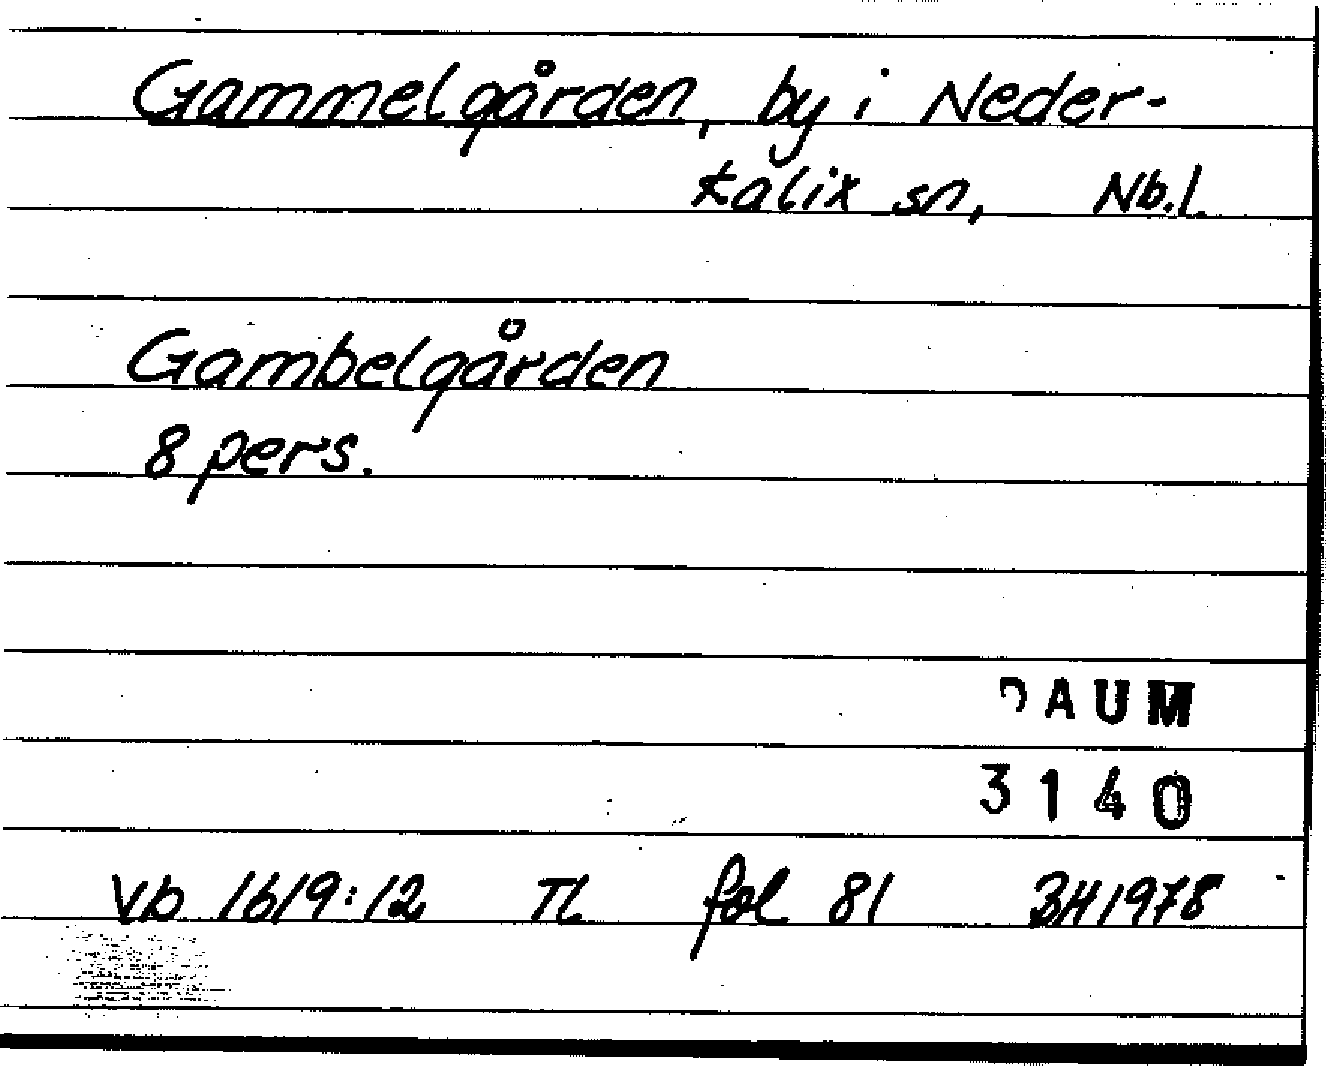 Gammelgården, by i Neder-
kalix sn, Nb.l.
Gambelgården
8 pers.
DAUM
3140
Vb 1619:12 TL fol 81 BH1978